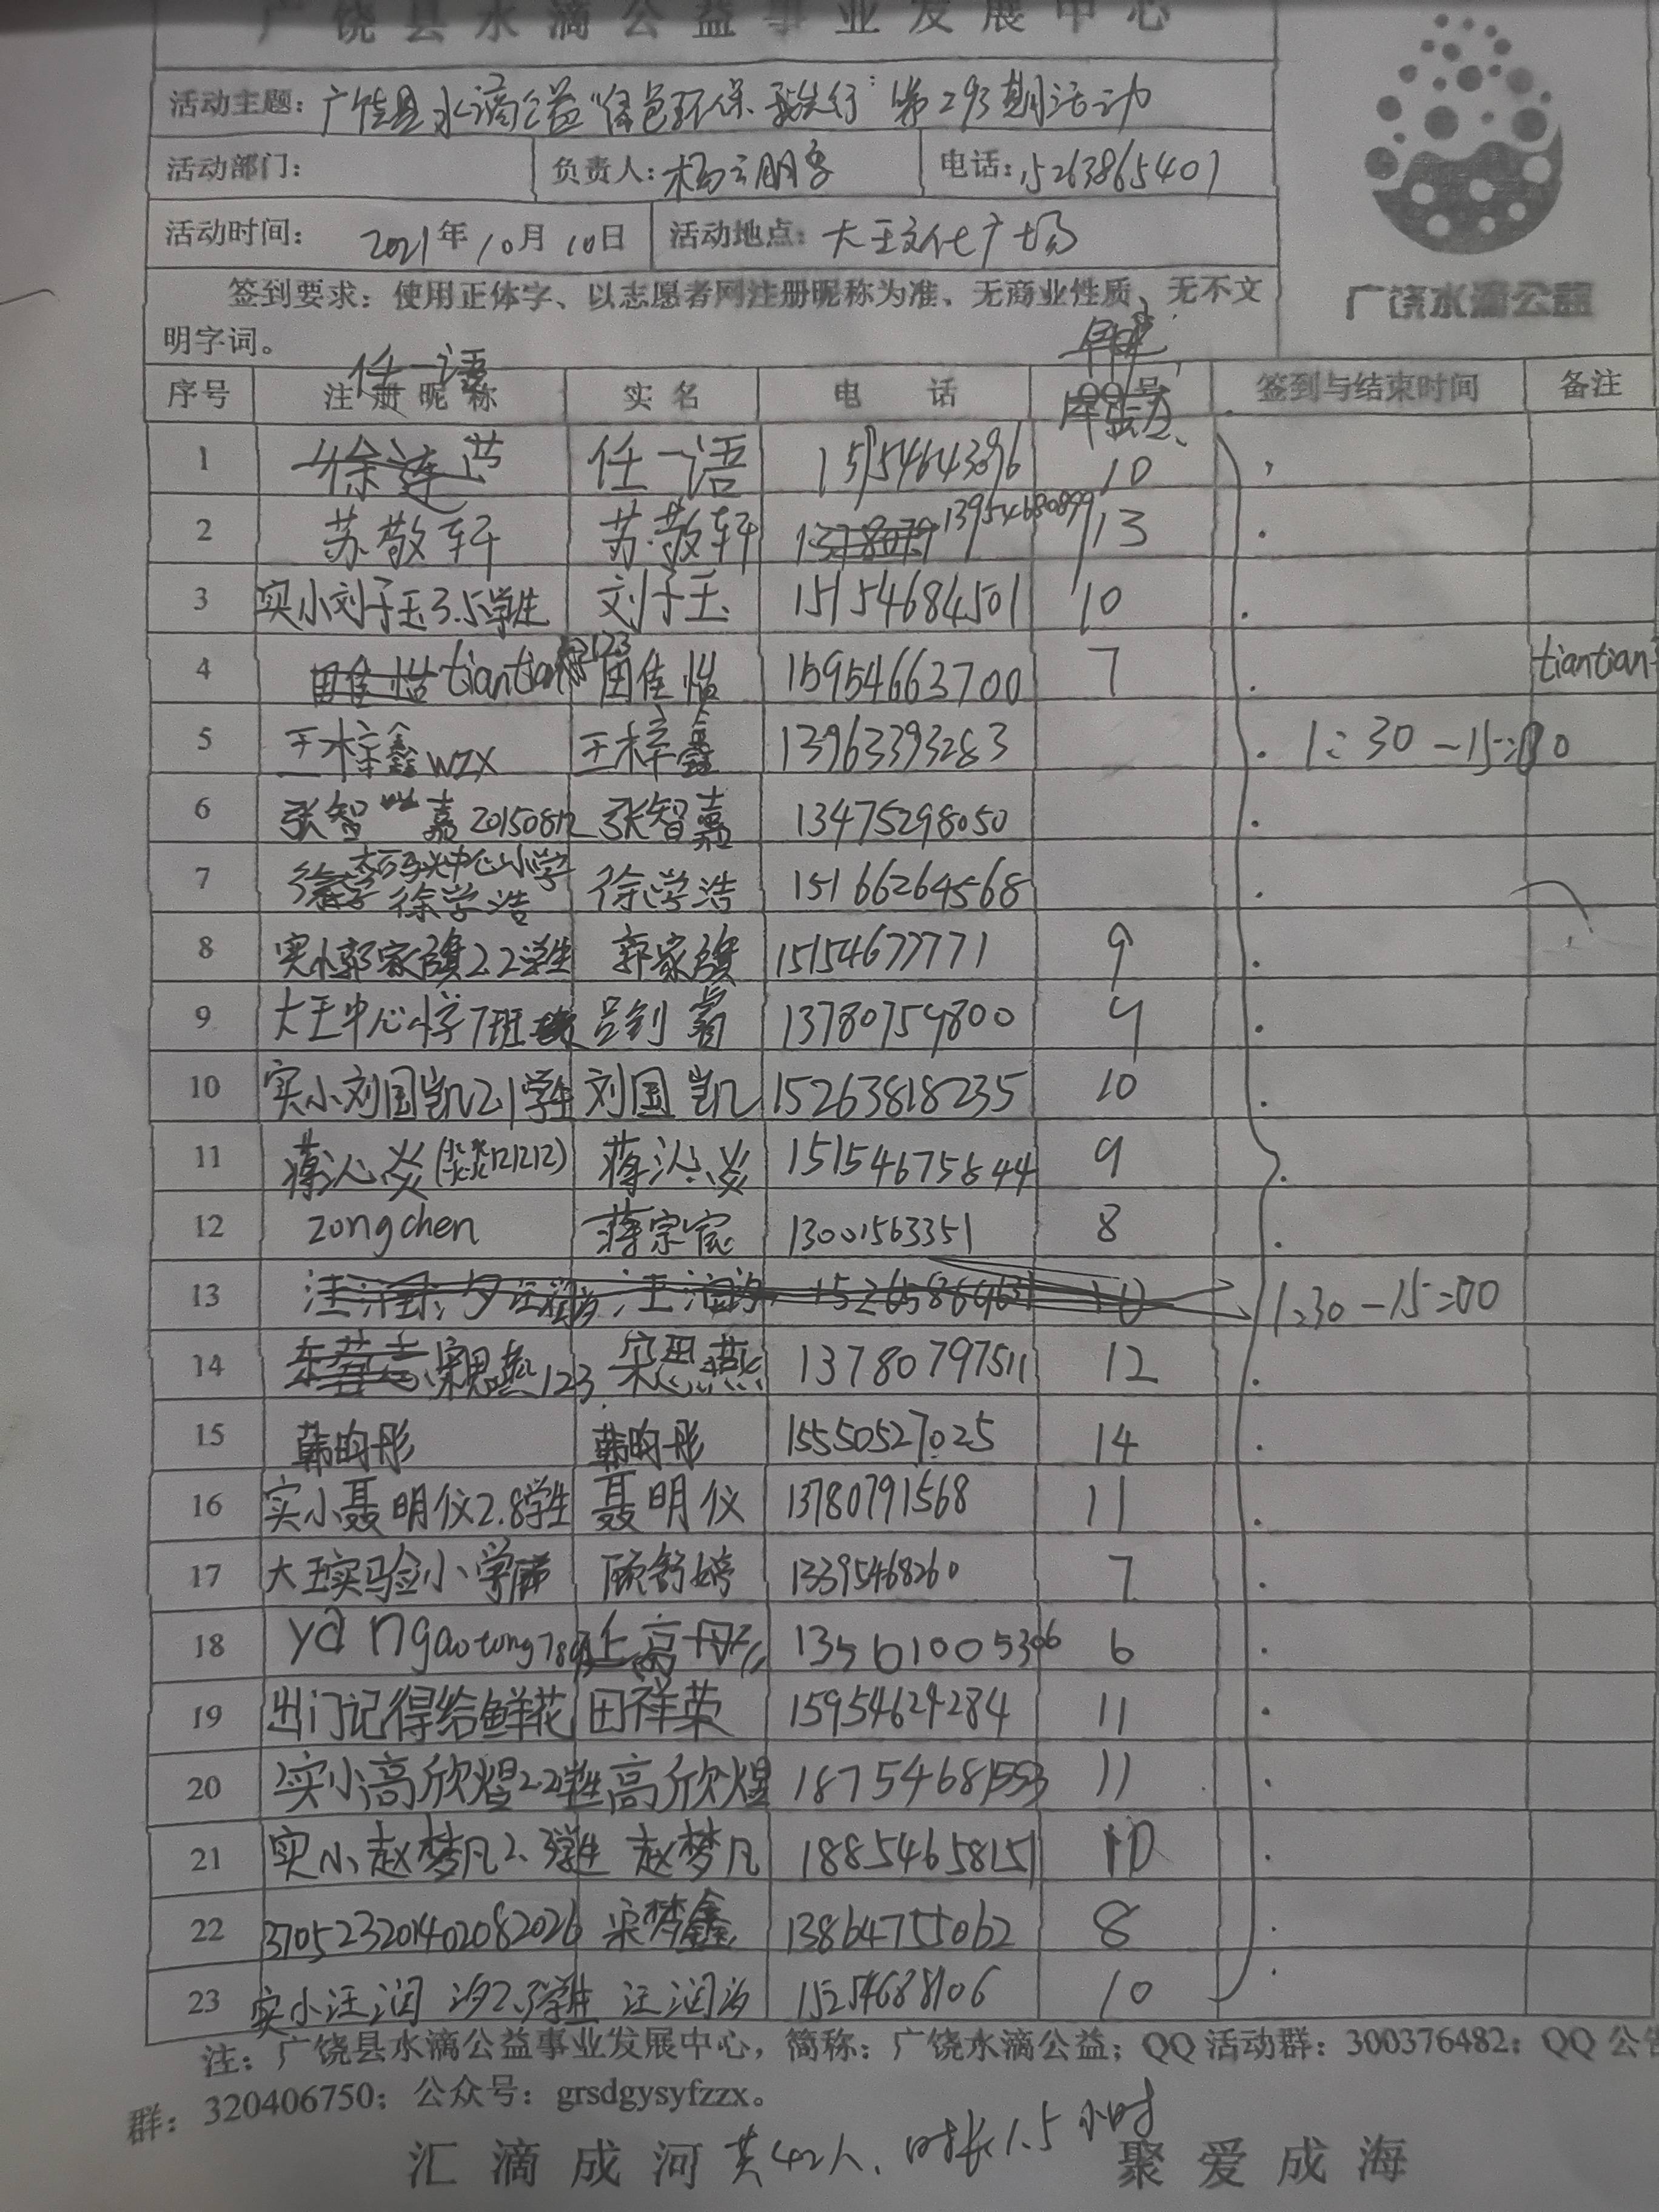 广饶县水滴公益事业发展中心
活动主题: 广饶县水滴公益“绿色环保 我先行”第293期活动
活动部门: 负责人: 电话: 15263865401
活动时间: 2021年10月10日 活动地点: 大王文化广场
广饶水滴公益
签到要求: 使用正体字、以志愿者网注册昵称为准、无商业性质、无不文
明字词。
任一语
序号 注册昵称 实名 电话 QQ号 签到与结束时间 备注
年龄
1 徐莲芷 任一语 15154643096 10
2 苏敬轩 苏敬轩 1378079 13954680899 13
3 实小刘子玉3.5学生 刘子玉 15154684501 10
4 田佳怡 tiantian 田佳怡 15954663700 7 tiantian
5 王梓鑫WZX 王梓鑫 13963393283 1:30-15:00
6 张智嘉20150812 张智嘉 13475298050
7 稻庄码头中心小学
徐学浩 徐学浩 15166264568
8 实小郭家旗2.2学生 郭家旗 15154677771 9
9 大王中心小学7班 吕钊睿 13780759800 9
10 实小刘国凯2.1学生 刘国凯 15263818235 10
11 蒋沁炎(炎炎121212) 蒋沁炎 15154675844 9
12 zongchen 蒋宗宸 13001563351 8
13 汪润汐 10 1:30-15:00
14 宋思燕123 宋思燕 13780797511 12
15 韩昀彤 韩昀彤 15550527025 14
16 实小聂明仪2.8学生 聂明仪 13780791568 11
17 大王实验小学 顾舒婷 13395468260 7
18 yangaotong789 高彤 13561005306 6
19 出门记得给鲜花 田祥荣 15954624284 11
20 实小高欣煜2.2学生 高欣煜 18754681553 11
21 实小赵梦凡2.3学生 赵梦凡 18854658151 10
22 370523201402082026 宋梦鑫 13864755062 8
23 实小汪润汐2.3学生 汪润汐 15254688106 10
注: 广饶县水滴公益事业发展中心, 简称: 广饶水滴公益; QQ活动群: 300376482; QQ公告
群: 320406750; 公众号: grsdgysyfzzx。
汇滴成河 共42人、时长1.5小时 聚爱成海